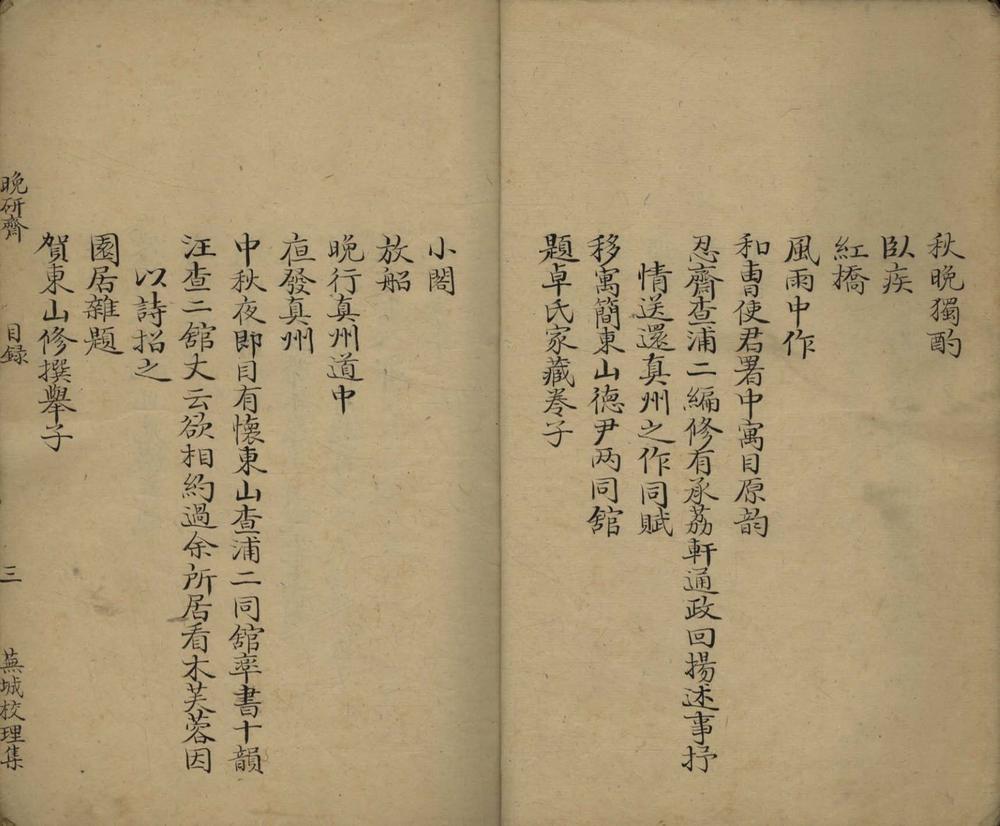 秋晚獨酌
臥疾
紅橋
風雨中作
和曹使君署中寓目原韵
忍齋查浦二編修有承荔軒通政回揚述事抒
情送還真州之作同賦
移寓簡東山德尹两同舘
題卓氏家藏卷子
小閣
放船
晚行真州道中
夜發真州
中秋夜即目有懷東山查浦二同舘率書十韻
汪查二舘丈云欲相約過余所居看木芙蓉因
以詩招之
園居雜題
賀東山修撰舉子
晚研齋 目録 三 蕪城校理集